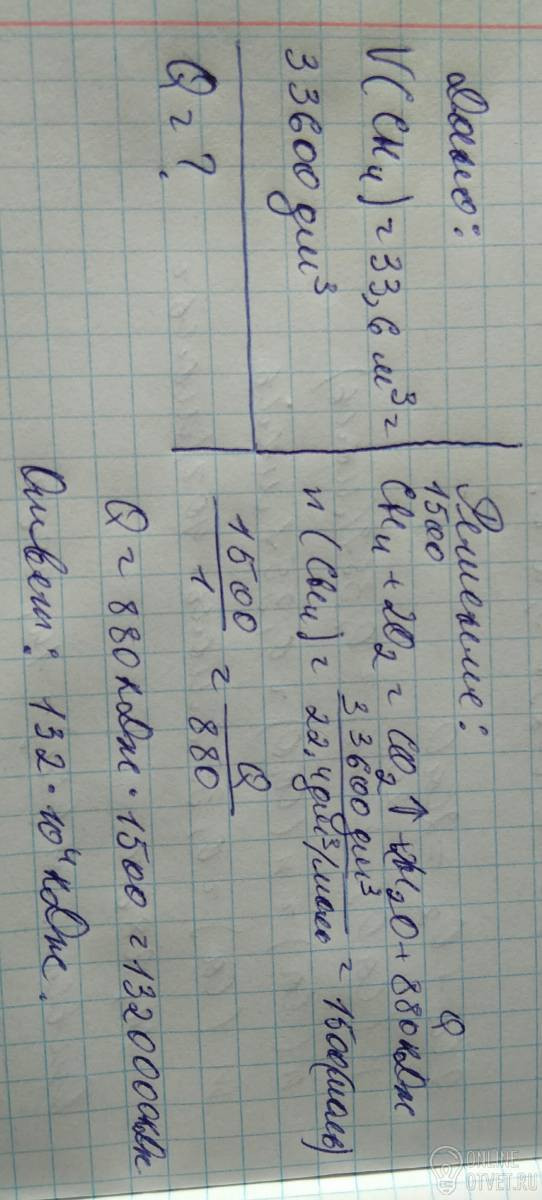 Дано:
V(CH4) = 33,6 м³ =
33600 дм³
Q = ?
Решение:
1500 Q
CH4 + 2O2 = CO2↑ + H2O + 880 кДж
n(CH4) = 33600 дм³ / 22,4 дм³/моль = 1500(моль)
1500 / 1 = Q / 880
Q = 880 кДж · 1500 = 1320000 кДж
Ответ: 132 · 10⁴ кДж.
ONLINE
OTVET.RU